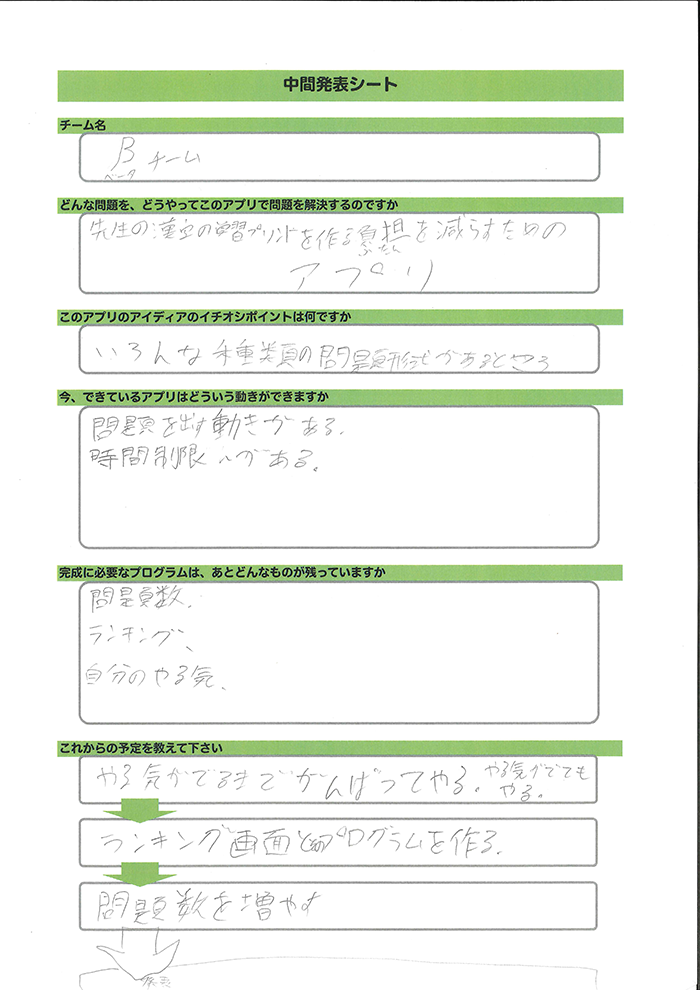 中間発表シート
チーム名
β チーム
ベータ
どんな問題を、どうやってこのアプリで問題を解決するのですか
先生の漢字の学習プリントを作る負担を減らすための
ふたん
アプリ
このアプリのアイディアのイチオシポイントは何ですか
いろんな種類の問題形式があるところ
今、できているアプリはどういう動きができますか
問題を出す動きがある。
時間制限がある。
完成に必要なプログラムは、あとどんなものが残っていますか
問題数、
ランキング、
自分のやる気、
これからの予定を教えて下さい
やる気がでるまでがんばってやる。やる気がでても
やる。
ランキング画面とプログラムを作る。
問題数を増やす